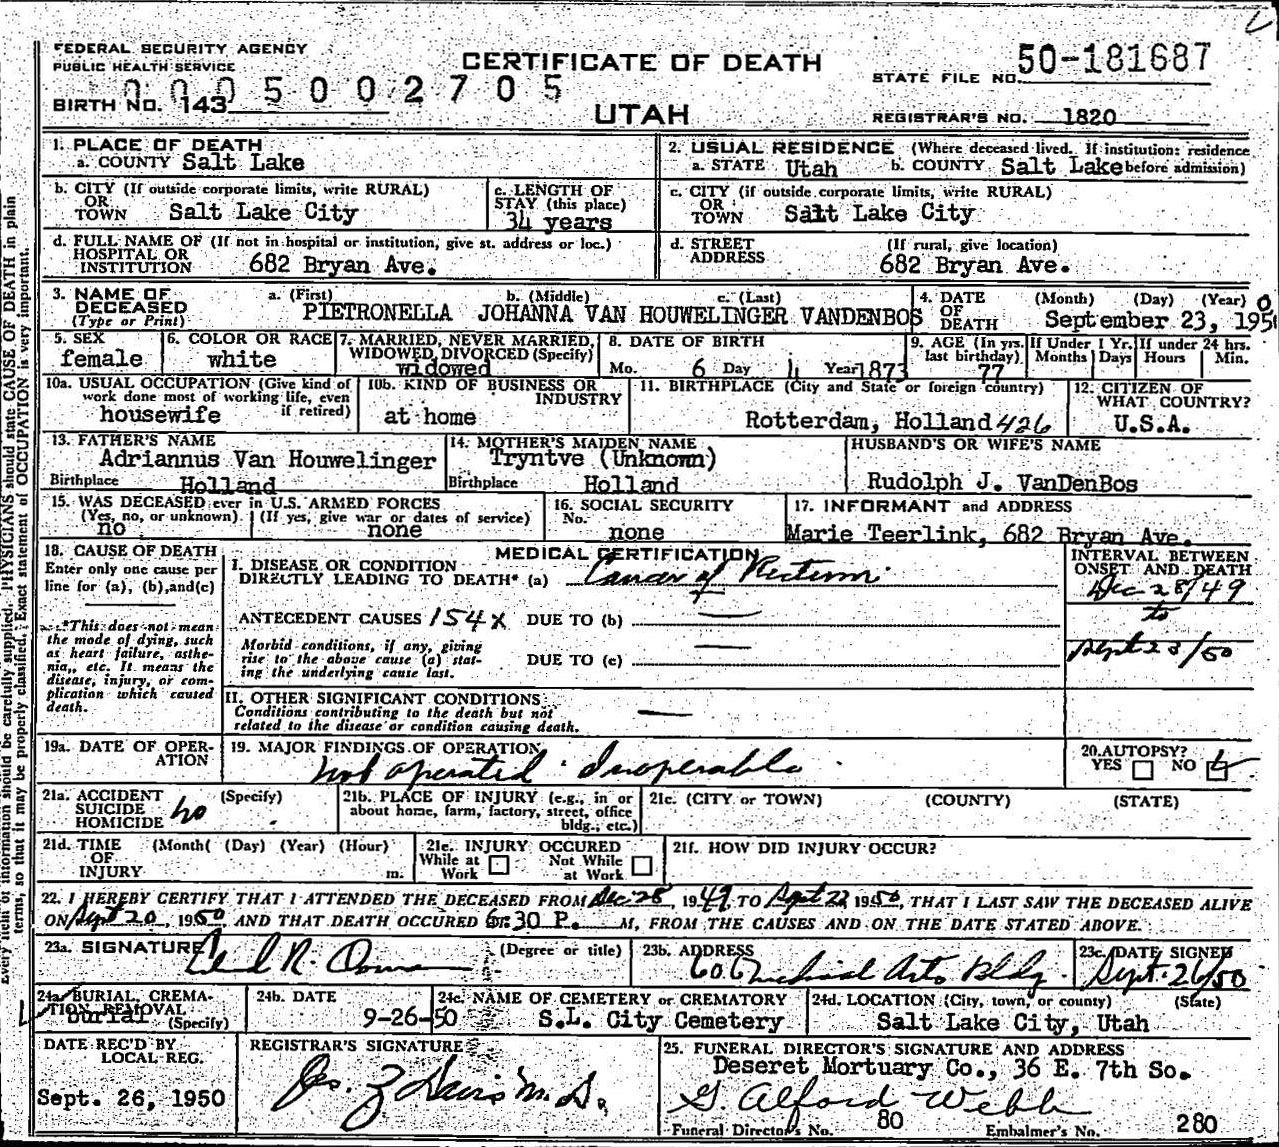 FEDERAL SECURITY AGENCY
PUBLIC HEALTH SERVICE
CERTIFICATE OF DEATH
UTAH
STATE FILE NO. 50-181687
0005002705
BIRTH NO. 143
REGISTRAR'S NO. 1820
1. PLACE OF DEATH
a. COUNTY Salt Lake
2. USUAL RESIDENCE (Where deceased lived. If institution: residence before admission)
a. STATE Utah b. COUNTY Salt Lake
b. CITY (If outside corporate limits, write RURAL)
OR TOWN Salt Lake City
c. LENGTH OF STAY (this place)
34 years
c. CITY (if outside corporate limits, write RURAL)
OR TOWN Salt Lake City
d. FULL NAME OF (If not in hospital or institution, give st. address or loc.)
HOSPITAL OR INSTITUTION 682 Bryan Ave.
d. STREET ADDRESS (If rural, give location)
682 Bryan Ave.
3. NAME OF DECEASED (Type or Print) a. (First) b. (Middle) c. (Last)
PIETRONELLA JOHANNA VAN HOUWELINGER VANDENBOS
4. DATE OF DEATH (Month) (Day) (Year)
September 23, 1950
5. SEX
female
6. COLOR OR RACE
white
7. MARRIED, NEVER MARRIED, WIDOWED, DIVORCED (Specify)
widowed
8. DATE OF BIRTH
Mo. 6 Day 4 Year 1873
9. AGE (In yrs. last birthday)
77
If Under 1 Yr. Months Days
If under 24 hrs. Hours Min.
10a. USUAL OCCUPATION (Give kind of work done most of working life, even if retired)
housewife
10b. KIND OF BUSINESS OR INDUSTRY
at home
11. BIRTHPLACE (City and State or foreign country)
Rotterdam, Holland 426
12. CITIZEN OF WHAT COUNTRY?
U.S.A.
13. FATHER'S NAME
Adriannus Van Houwelinger
Birthplace Holland
14. MOTHER'S MAIDEN NAME
Tryntve (Unknown)
Birthplace Holland
HUSBAND'S OR WIFE'S NAME
Rudolph J. VanDenBos
15. WAS DECEASED ever in U.S. ARMED FORCES
(Yes, no, or unknown) (If yes, give war or dates of service)
no none
16. SOCIAL SECURITY No.
none
17. INFORMANT and ADDRESS
Marie Teerlink, 682 Bryan Ave.
18. CAUSE OF DEATH
Enter only one cause per line for (a), (b), and (c)
*This does not mean the mode of dying, such as heart failure, asthenia, etc. It means the disease, injury, or complication which caused death.
MEDICAL CERTIFICATION
I. DISEASE OR CONDITION DIRECTLY LEADING TO DEATH* (a) Cancer of Rectum
ANTECEDENT CAUSES 154X DUE TO (b) —
Morbid conditions, if any, giving rise to the above cause (a) stating the underlying cause last.
DUE TO (c) —
INTERVAL BETWEEN ONSET AND DEATH
Dec 28/49
to
Sept 23/50
II. OTHER SIGNIFICANT CONDITIONS
Conditions contributing to the death but not related to the disease or condition causing death. —
19a. DATE OF OPERATION
19. MAJOR FINDINGS OF OPERATION
Not operated Inoperable
20. AUTOPSY?
YES NO
21a. ACCIDENT SUICIDE HOMICIDE (Specify)
no
21b. PLACE OF INJURY (e.g., in or about home, farm, factory, street, office bldg., etc.)
21c. (CITY or TOWN) (COUNTY) (STATE)
21d. TIME OF INJURY (Month( (Day) (Year) (Hour) m.
21e. INJURY OCCURED
While at Work Not While at Work
21f. HOW DID INJURY OCCUR?
22. I HEREBY CERTIFY THAT I ATTENDED THE DECEASED FROM Dec 28, 1949 TO Sept 22 1950, THAT I LAST SAW THE DECEASED ALIVE
ON Sept 20, 1950, AND THAT DEATH OCCURED 6:30 P. M, FROM THE CAUSES AND ON THE DATE STATED ABOVE.
23a. SIGNATURE (Degree or title)
23b. ADDRESS
Medical Arts Bldg.
23c. DATE SIGNED
Sept. 26/50
24a. BURIAL, CREMATION, REMOVAL (Specify)
burial
24b. DATE
9-26-50
24c. NAME OF CEMETERY OR CREMATORY
S.L. City Cemetery
24d. LOCATION (City, town, or county) (State)
Salt Lake City, Utah
DATE REC'D BY LOCAL REG.
Sept. 26, 1950
REGISTRAR'S SIGNATURE
25. FUNERAL DIRECTOR'S SIGNATURE AND ADDRESS
Deseret Mortuary Co., 36 E. 7th So.
G. Alford Webb
Funeral Director's No. 80 Embalmer's No. 280
Every item of information should be carefully supplied. PHYSICIANS should state CAUSE OF DEATH in plain
terms, so that it may be properly classified. Exact statement of OCCUPATION is very important.